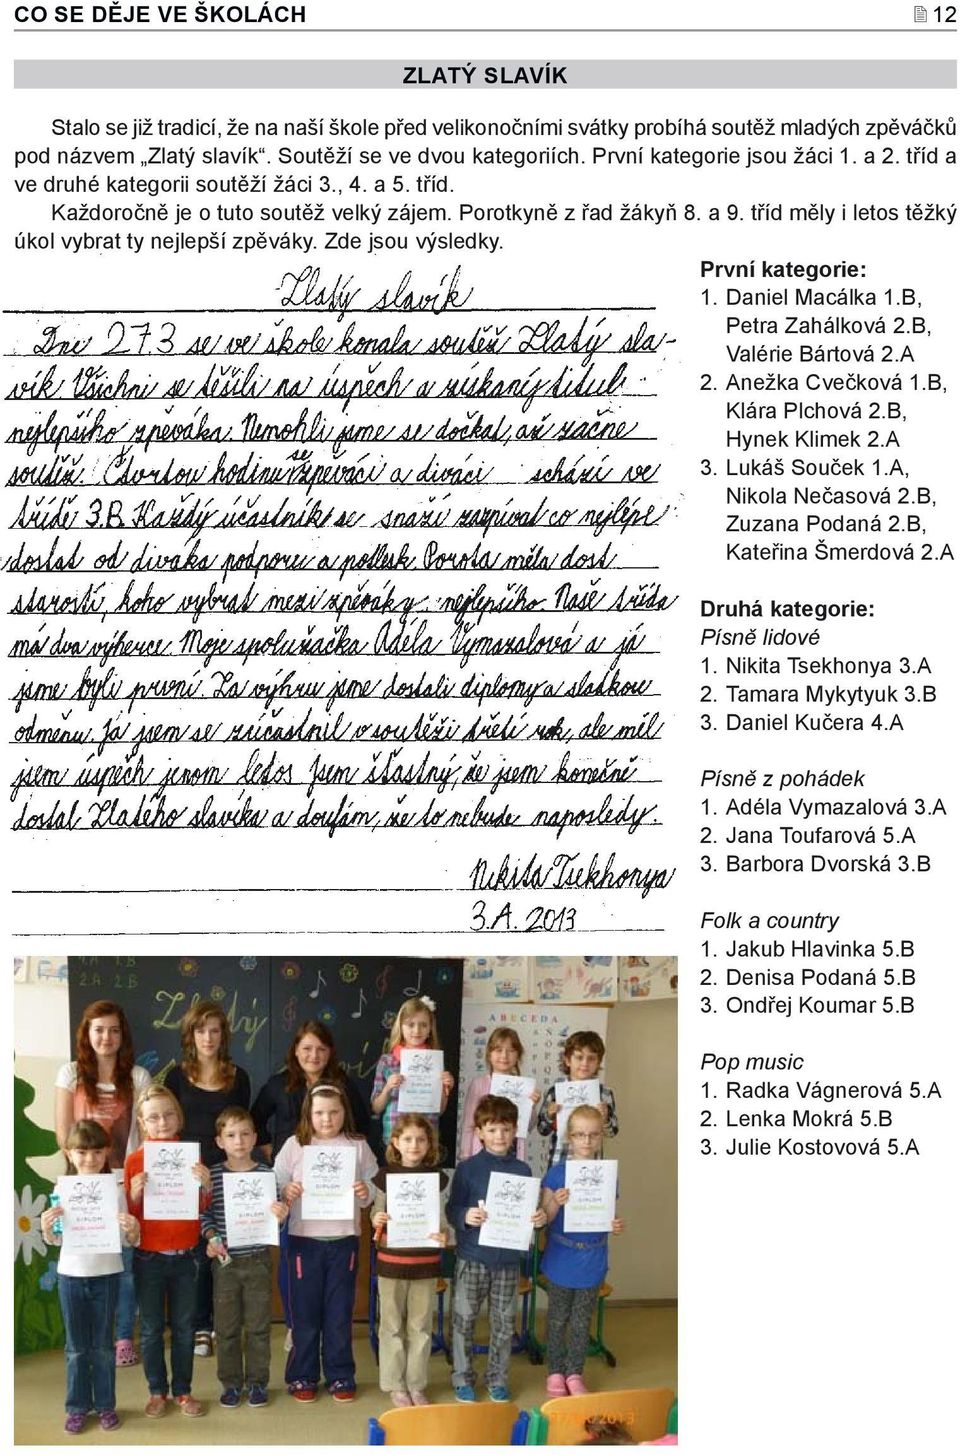 CO SE DĚJE VE ŠKOLÁCH 12
ZLATÝ SLAVÍK
Stalo se již tradicí, že na naší škole před velikonočními svátky probíhá soutěž mladých zpěváčků
pod názvem „Zlatý slavík“. Soutěží se ve dvou kategoriích. První kategorie jsou žáci 1. a 2. tříd a
ve druhé kategorii soutěží žáci 3., 4. a 5. tříd.
Každoročně je o tuto soutěž velký zájem. Porotkyně z řad žákyň 8. a 9. tříd měly i letos těžký
úkol vybrat ty nejlepší zpěváky. Zde jsou výsledky.
Zlatý slavík
Dne 27.3 se ve škole konala soutěž Zlatý sla-
vík. Všichni se těšili na úspěch a získaný titul
nejlepšího zpěváka. Nemohli jsme se dočkat, až začne
soutěž. Čtvrtou hodinu se zpěváci a diváci schází ve
třídě 3.B. Každý účastník se snaží zazpívat co nejlépe
dostat od diváka podporu a potlesk. Porota měla dost
starostí, koho vybrat mezi zpěváky nejlepšího. Naše třída
má dva výherce. Moje spolužačka Adéla Vymazalová a já
jsme byli první. Za výhru jsme dostali diplomy a sladkou
odměnu. Já jsem se zúčastnil v soutěži třetí rok, ale měl
jsem úspěch jenom letos. Jsem šťastný, že jsem konečně
dostal Zlatého slavíka a doufám, že to nebude naposledy.
Nikita Tsekhonya
3.A. 2013
První kategorie:
1. Daniel Macálka 1.B,
Petra Zahálková 2.B,
Valérie Bártová 2.A
2. Anežka Cvečková 1.B,
Klára Plchová 2.B,
Hynek Klimek 2.A
3. Lukáš Souček 1.A,
Nikola Nečasová 2.B,
Zuzana Podaná 2.B,
Kateřina Šmerdová 2.A
Druhá kategorie:
Písně lidové
1. Nikita Tsekhonya 3.A
2. Tamara Mykytyuk 3.B
3. Daniel Kučera 4.A
Písně z pohádek
1. Adéla Vymazalová 3.A
2. Jana Toufarová 5.A
3. Barbora Dvorská 3.B
Folk a country
1. Jakub Hlavinka 5.B
2. Denisa Podaná 5.B
3. Ondřej Koumar 5.B
Pop music
1. Radka Vágnerová 5.A
2. Lenka Mokrá 5.B
3. Julie Kostovová 5.A
1.A 1.B
2.A 2.B
Zlatý
ABECEDA
DIPLOM
DIPLOM
DIPLOM
DIPLOM
DIPLOM
DIPLOM
DIPLOM
2013